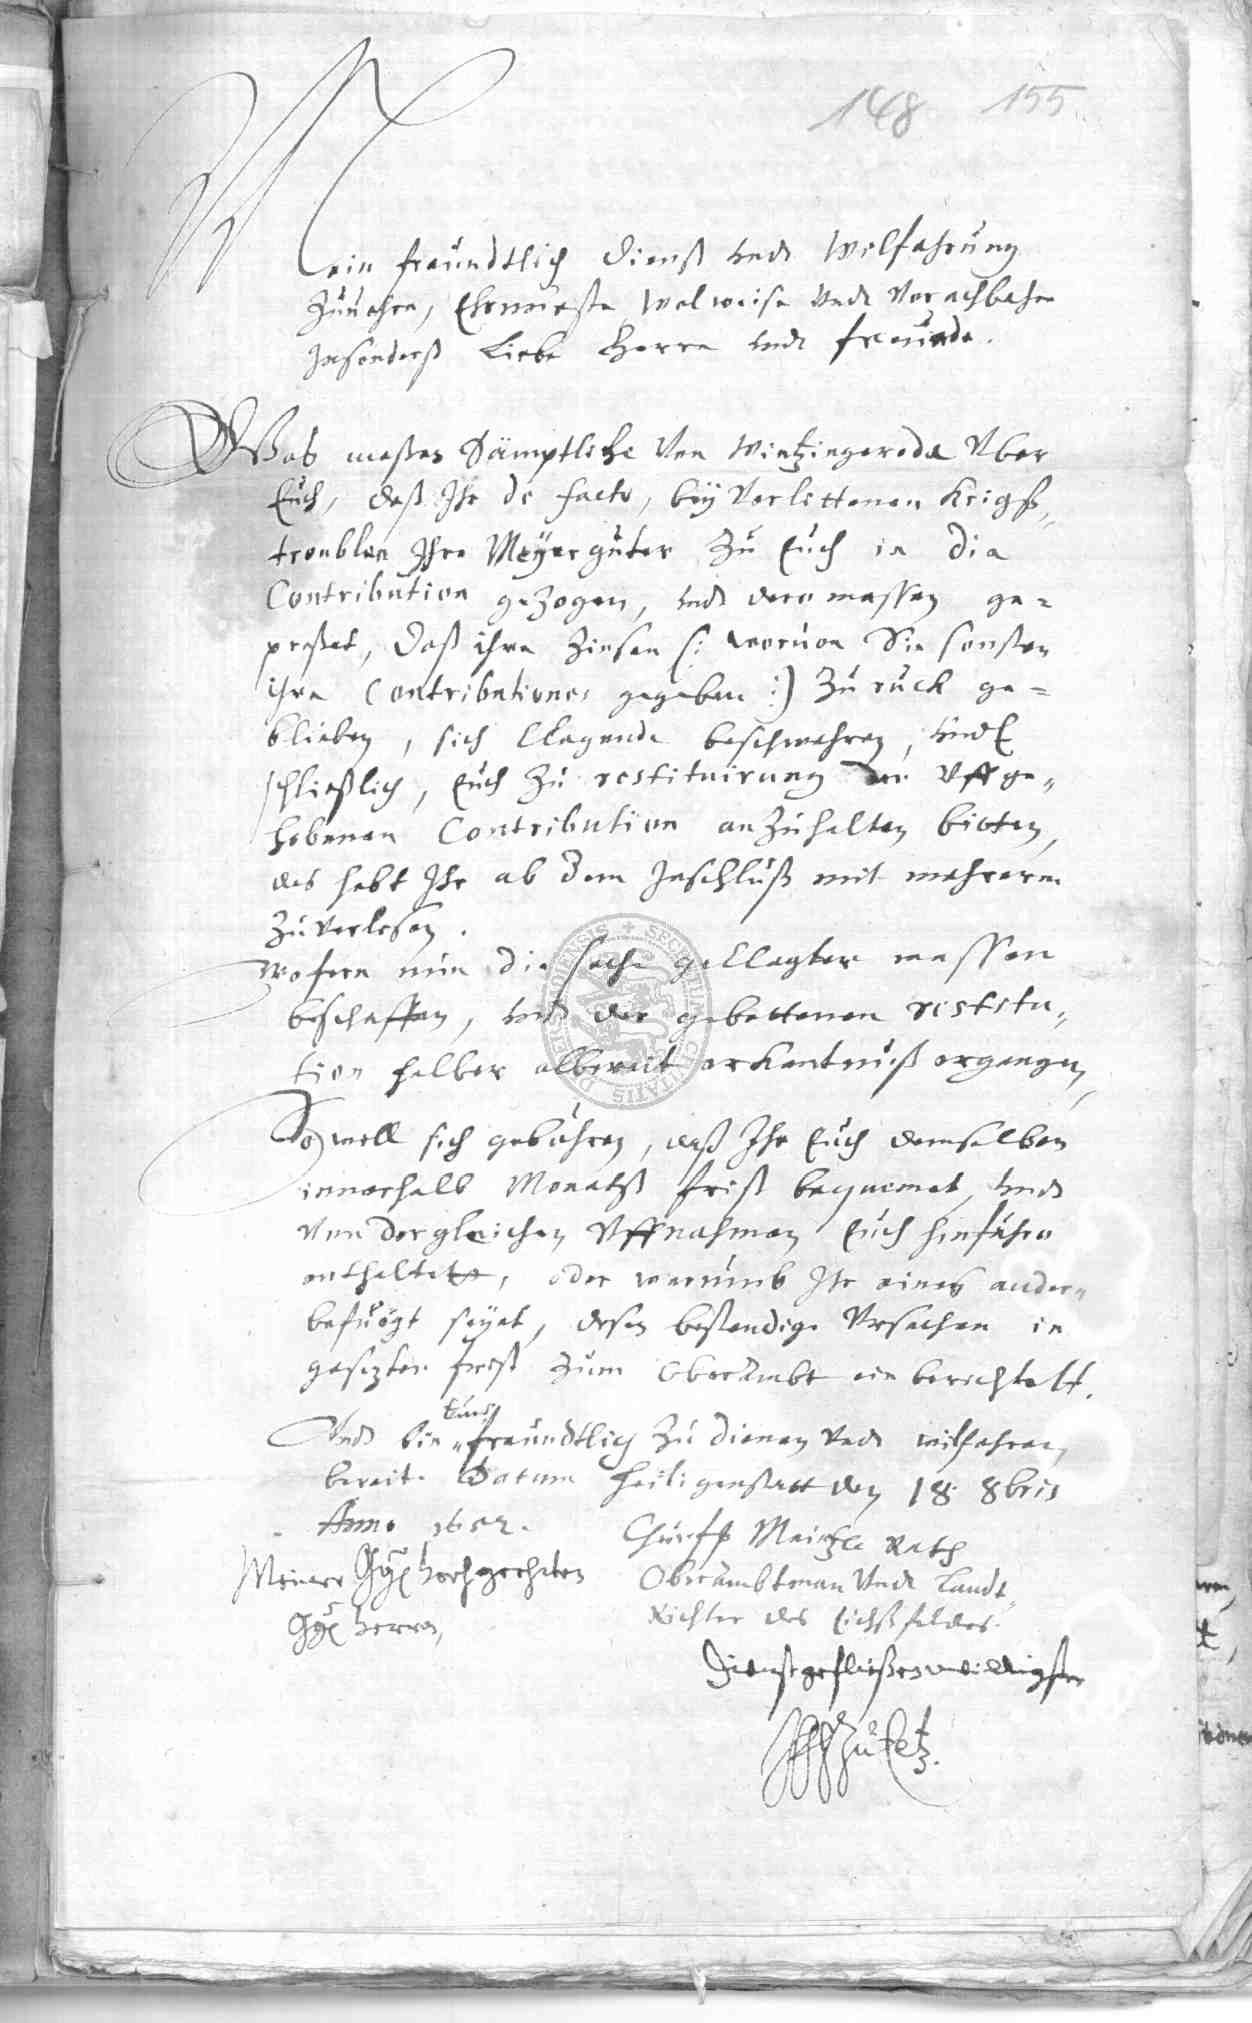 148 155
Mein freundtlich dienst undt Wilfahrung
Zuuohrn, Ehrnueste Wolweise undt Vorachtbahre
Insonderß Liebe Herrn undt freunde.
Was maßen Sämptliche Von Wintzingeroda Vber
Euch, daß Ihr de facto, bey Verlittenen Krigß„
troublen Ihre Meyergüter Zu Euch in die
Contribution gezogen, undt deromassen ge=
preßet, daß ihre Zinsen (: woruon Sie sonsten
ihre Contributiones gegeben :) Zu ruck ge=
blieben, sich Clagende beschwehren, undt
schließlich, Euch Zu restituirung der Vffge„
hobenen Contribution anZuhalten bitten,
das habt Ihr ab dem Inschluß mit mehrerm
Zuuerlesen.
Wofern nun die sache geclagter massen
beschaffen, undt der gebettenen restitu„
tion halber albereit erkantnuß ergangen,
So will sich gebühren, daß Ihr Euch demselben
innerhalb Monatß frist bequemet, undt
von dergleichen Vffnahmen Euch hinführo
enthaltet, oder warumb Ihr eines andern
befuegt seyet, desen bestendige Vrsachen in
gesezter frist Zum Oberambt ein berichtett.
Undt bin Euch freundtlich Zu dienen undt wilfahren
bereit. Datum Heiligenstatt den 18 8bris
Anno 1652.
Churfß Maintz Rath
Oberambtman Undt Landt„
Richter des Eichßfeldes.
Meiner hochgeehrten
herren,
Dienstgefließenwilligster
SECRETUM CIVITATIS